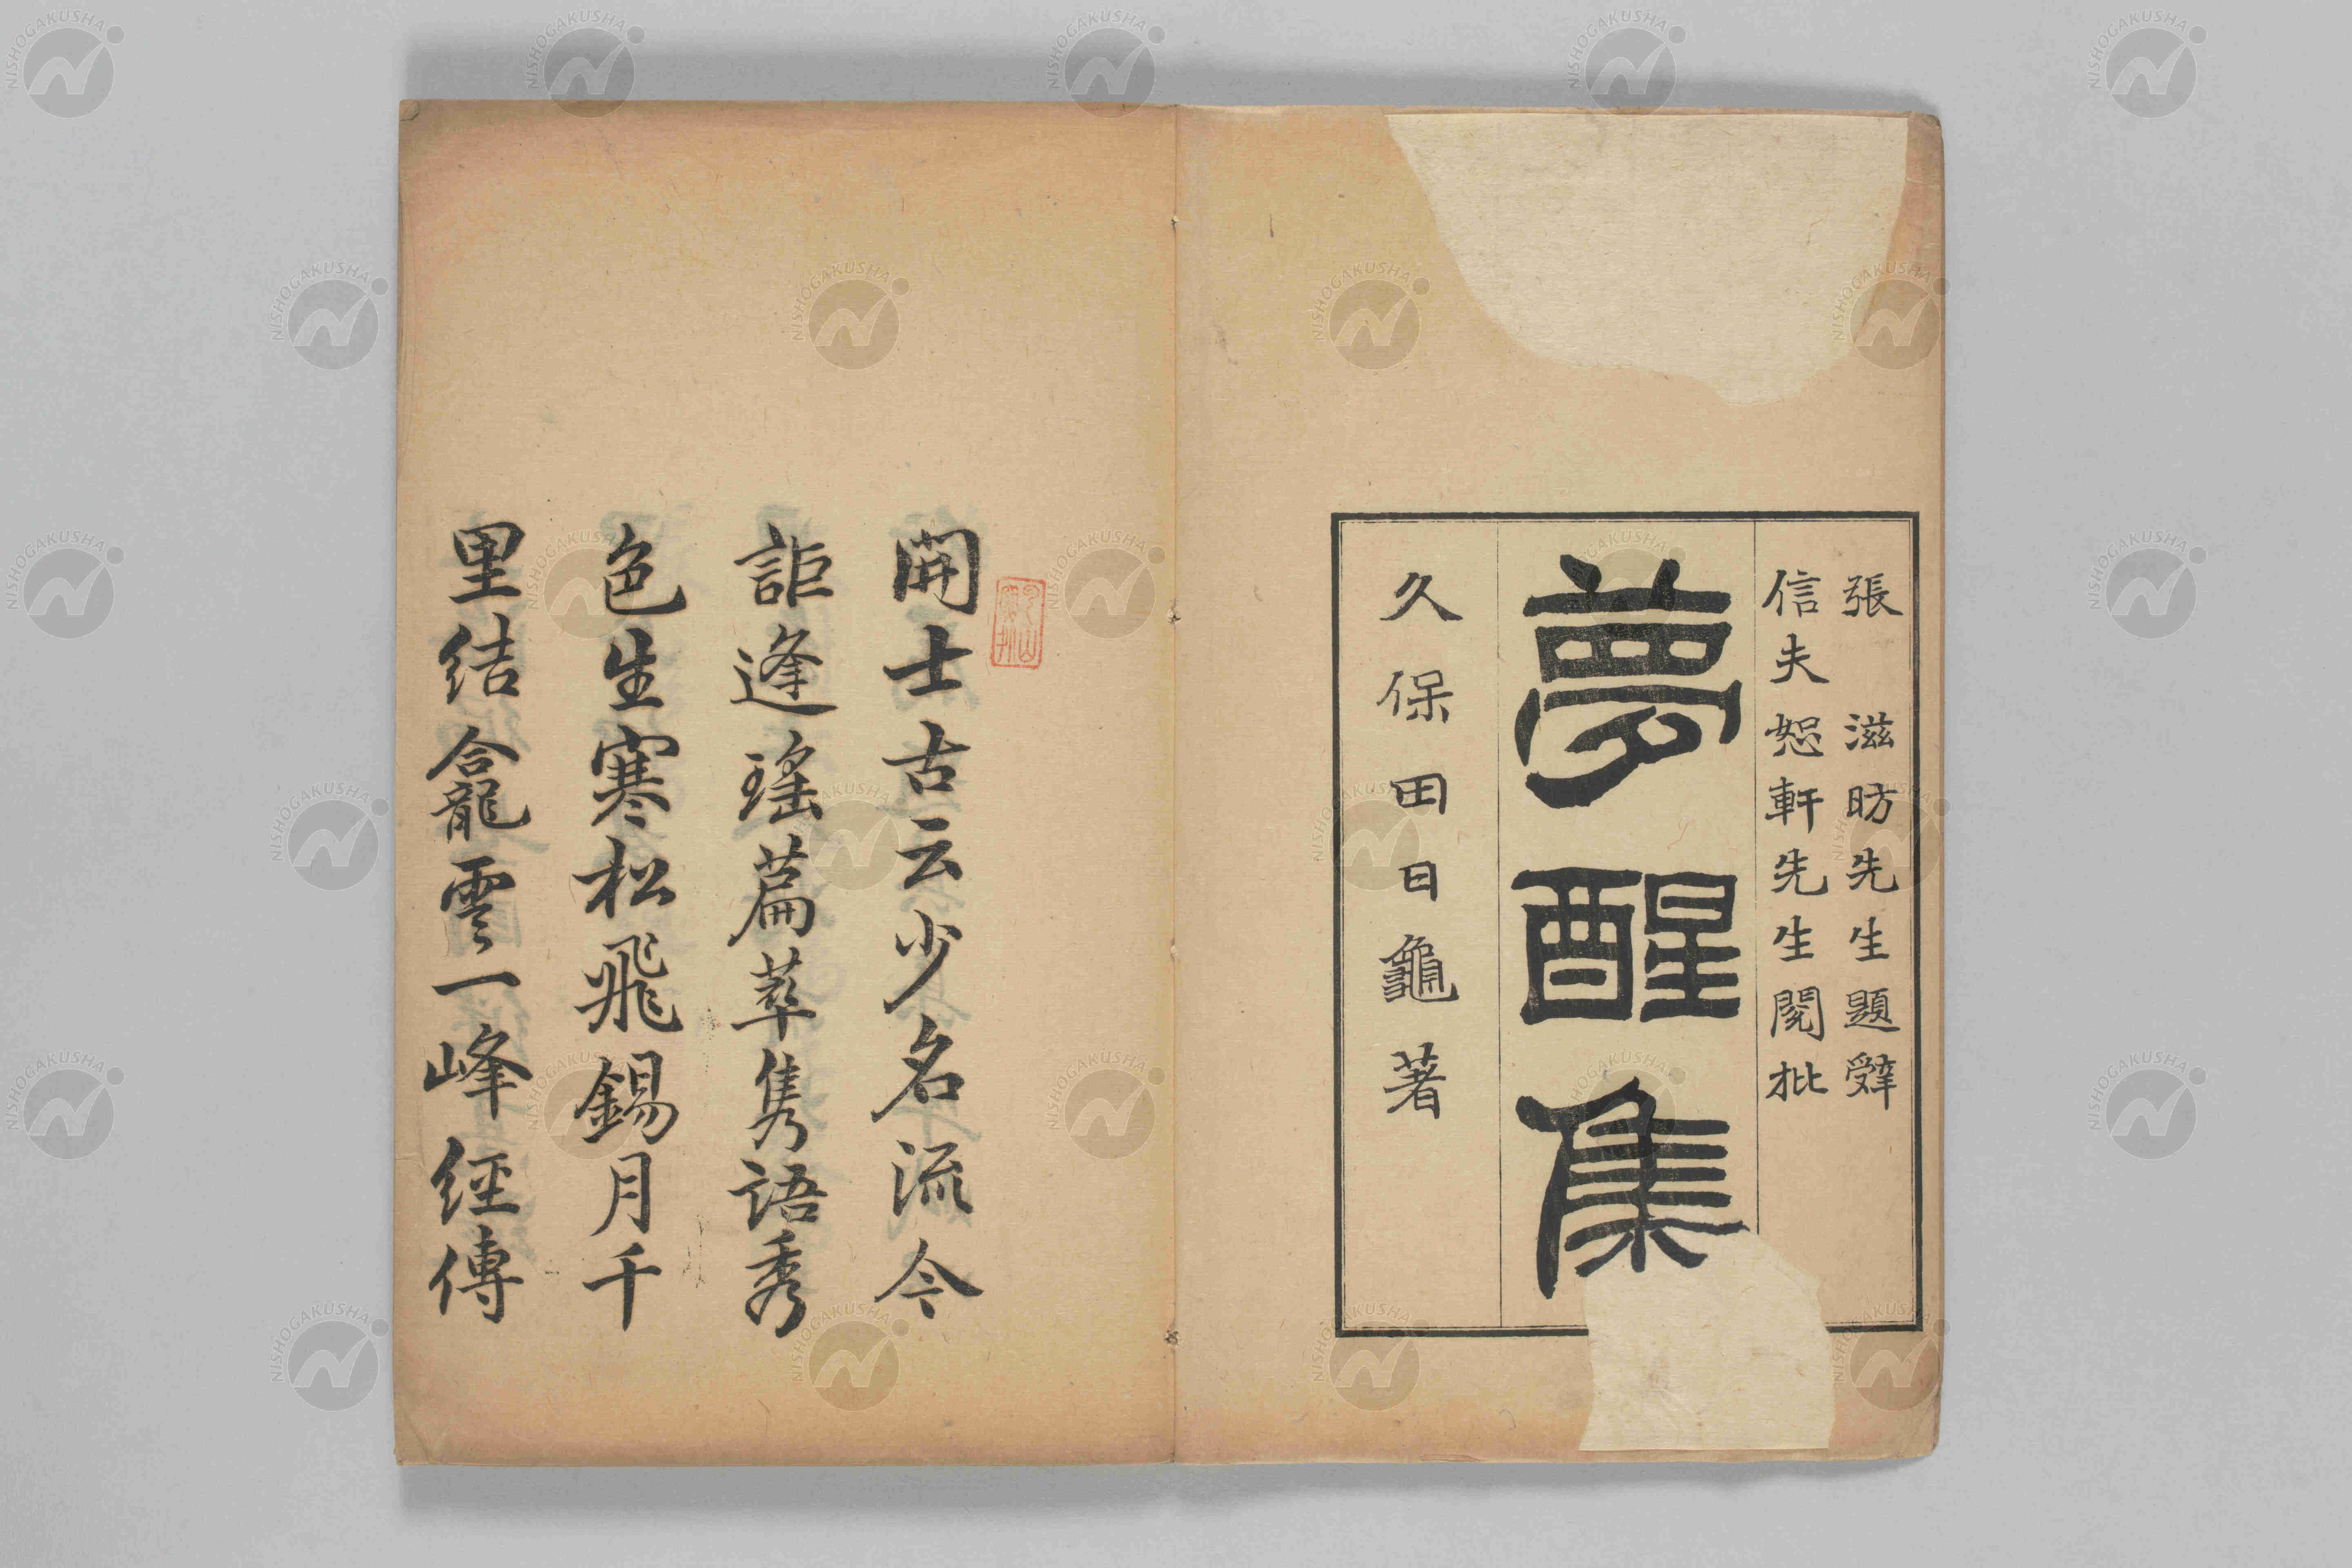 張滋昉先生題辭
信夫恕軒先生閱批
夢醒集
久保田日龜著
開士古云少名流今
詎逢瑤篇萃雋語秀
色生寒松飛錫月千
里結龕雲一峰經傳
NISHOGAKUSHA